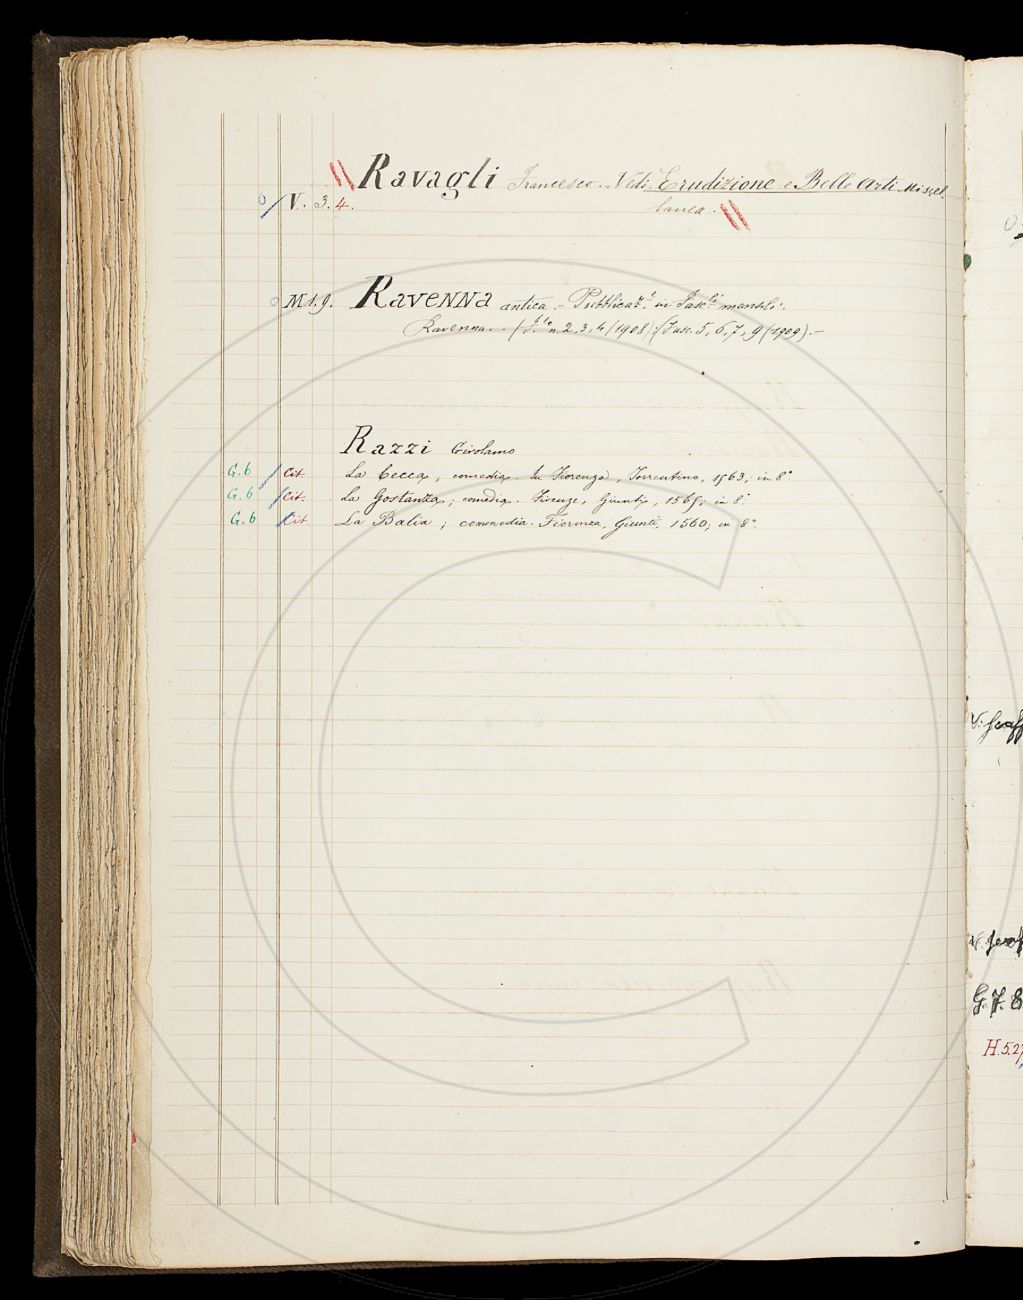 Ravagli Francesco. Vedi: Erudizione e Belle Arti Miscel.
o V. 3. 4. lanea.
o M. 1. 9. Ravenna antica. - Pubblicaz.e in Fasc.li mensili.
Ravenna. - (F.li n. 2, 3, 4 (1908); (Fasc. 5, 6, 7, 9 (1909). -
Razzi Girolamo
G. 6 Cit. La Cecca, comedia. In Fiorenza, Torrentino, 1563; in 8°
G. 6 Cit. La Gostanza; comedia. Firenze, Giunti, 1565; in 8°
G. 6 Cit La Balia; commedia. Fiorenza, Giunti, 1560; in 8°
G. 7. 8
H. 5. 27